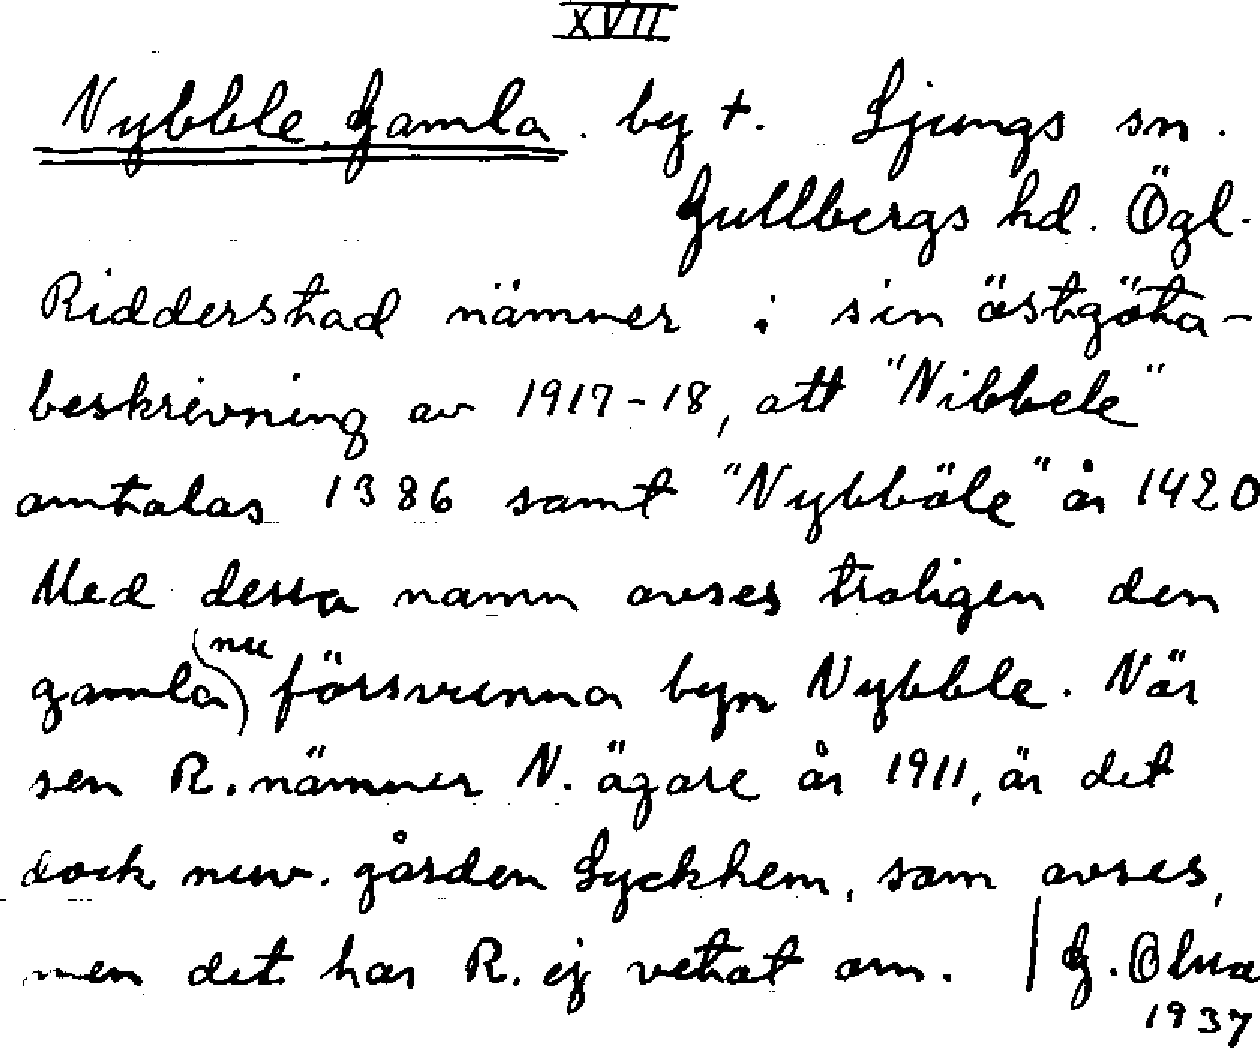 XVII
Nybble, Gamla. by †. Ljungs sn.
Gullbergs hd. Ögl.
Ridderstad nämner i sin östgöta-
beskrivning av 1917-18, att "Nibbele"
omtalas 1386 samt "Nybböle" år 1420
Med dessa namn avses troligen den
gamla nu försvunna byn Nybble. När
sen R. nämner N. ägare år 1911, är det
dock nuv. gården Lyckhem, som avses,
men det har R. ej vetat om. / G.
1937